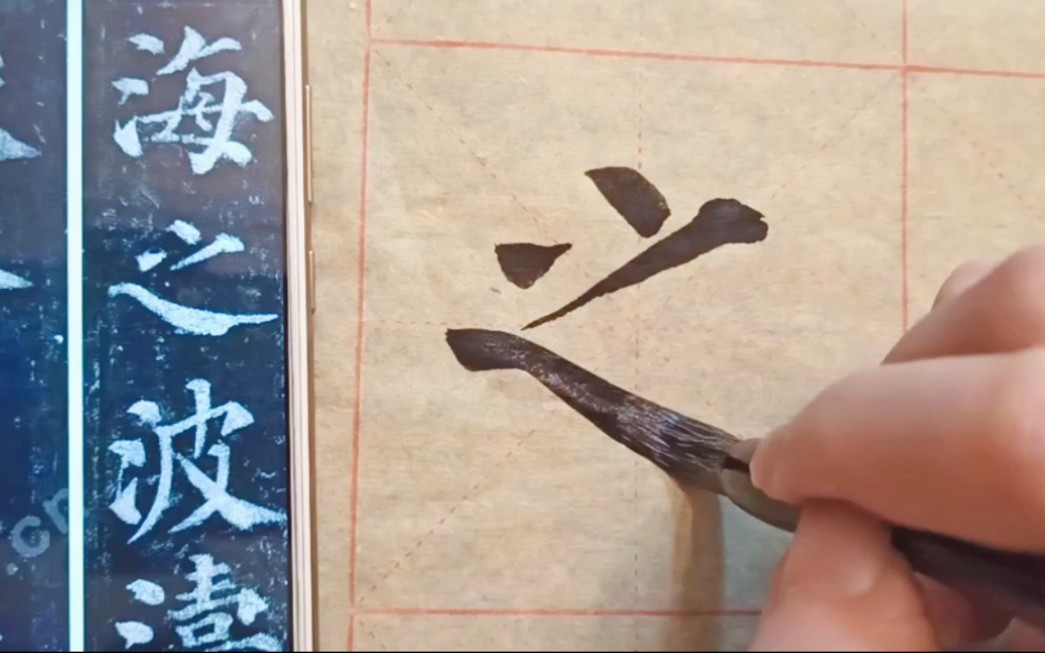 海之波
之
.cn